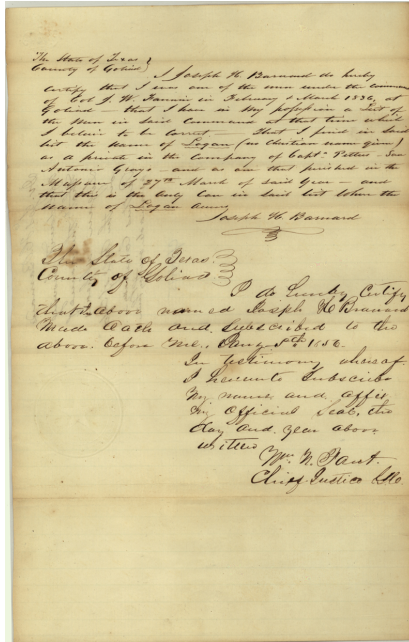 The State of Texas
County of Goliad
I Joseph H. Barnard do hereby
certify that I was one of the men under the command
of Col J. W. Fannin in February & March 1836, at
Goliad – that I have in my possession a List of
the men in said Command at that time which
I believe to be correct – That I find in said
list the name of Logan (no christian name given)
as a private in the Company of Capt. Pettus – San
Antonio Greys and as one that perished in the
Massacre of 27th March of said year – and
that this is the only Case in said list when the
name of Logan
Joseph H Barnard
The State of Texas
County of Goliad
I do hereby Certify
that the above named Joseph H Barnard
Made Oath and Subscribed to the
above before me,
In testimony whereof
I hereunto Subscribe
My name and affix
My Official Seal, the
day and year above
written
Wm. N. Fant.
Chief Justice